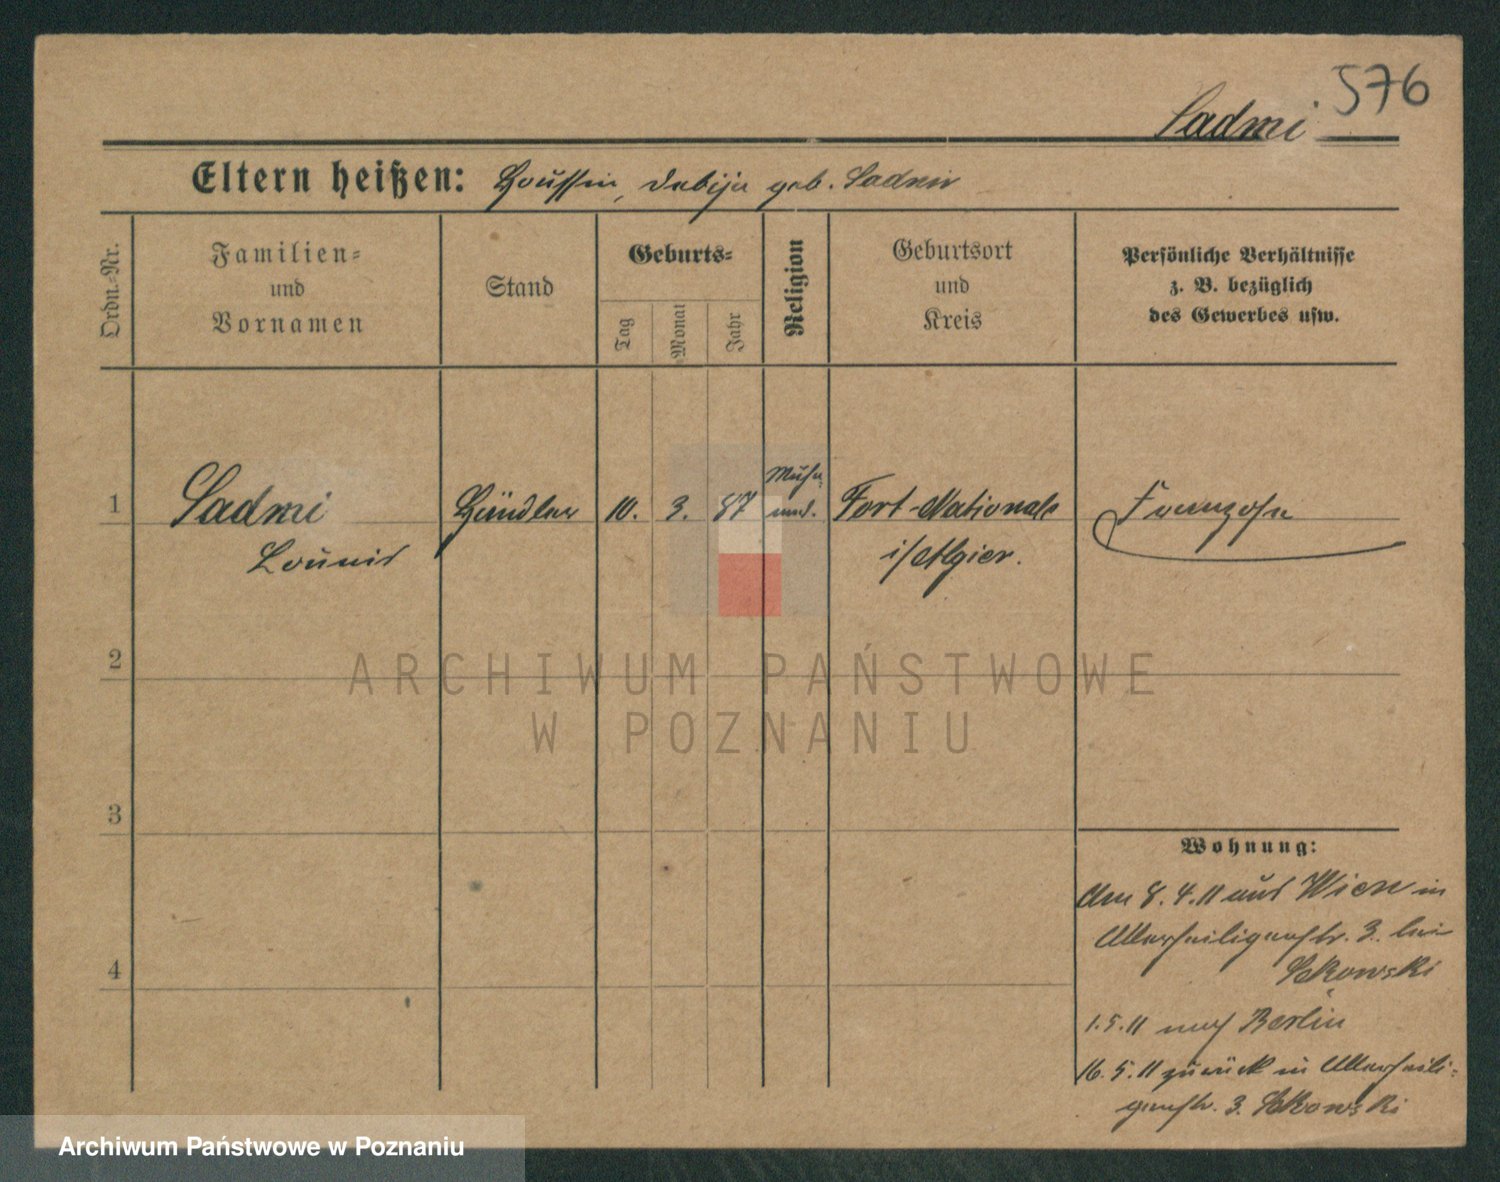 576
Sadmi
Eltern heißen: Houssin, Dabija geb. Sadmi
Ordn.-Nr.
Familien-
und
Vornamen
Stand
Geburts-
Tag
Monat
Jahr
Religion
Geburtsort
und
Kreis
Persönliche Verhältnisse
z. B. bezüglich
des Gewerbes usw.
1
Sadmi
Lounis
Händler
10. 3. 87
Muha
med.
Fort-Nationale
i/Algier.
Franzose
2
3
4
ARCHIWUM PAŃSTWOWE
W POZNANIU
Wohnung:
Am 8.4.11 aus Wien in
Allerheiligenstr. 3. bei
Sekowski
1.5.11 nach Berlin
16.5.11 zurück in Allerheili-
genstr. 3. Sekowski
Archiwum Państwowe w Poznaniu